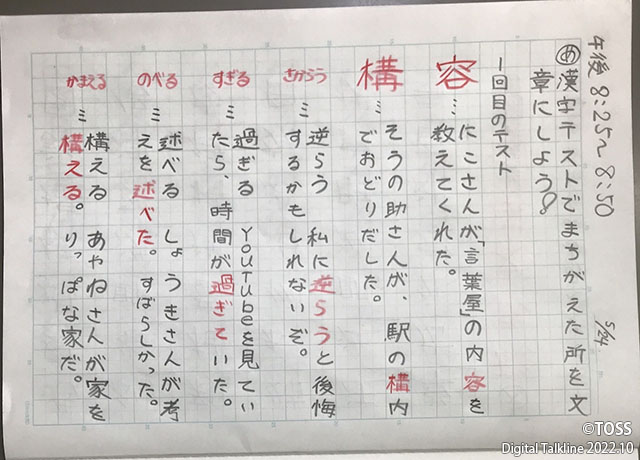 午後 8:25~8:50
5/24
め 漢字テストでまちがえた所を文
章にしよう♪
一回目のテスト
容…にこさんが「言葉屋」の内容を
教えてくれた。
構…そうの助さんが、駅の構内
でおどりだした。
さからう…逆らう 私に逆らうと後悔
するかもしれないぞ。
すぎる…過ぎる YouTubeを見てい
たら、時間が過ぎていた。
のべる…述べる しょうきさんが考
えを述べた。すばらしかった。
かまえる…構える あやねさんが家を
構える。りっぱな家だ。
©TOSS
Digital Talkline 2022.10